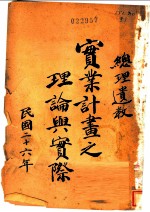 總理遺教
實業計畫之
理論與實際
民國二十六年